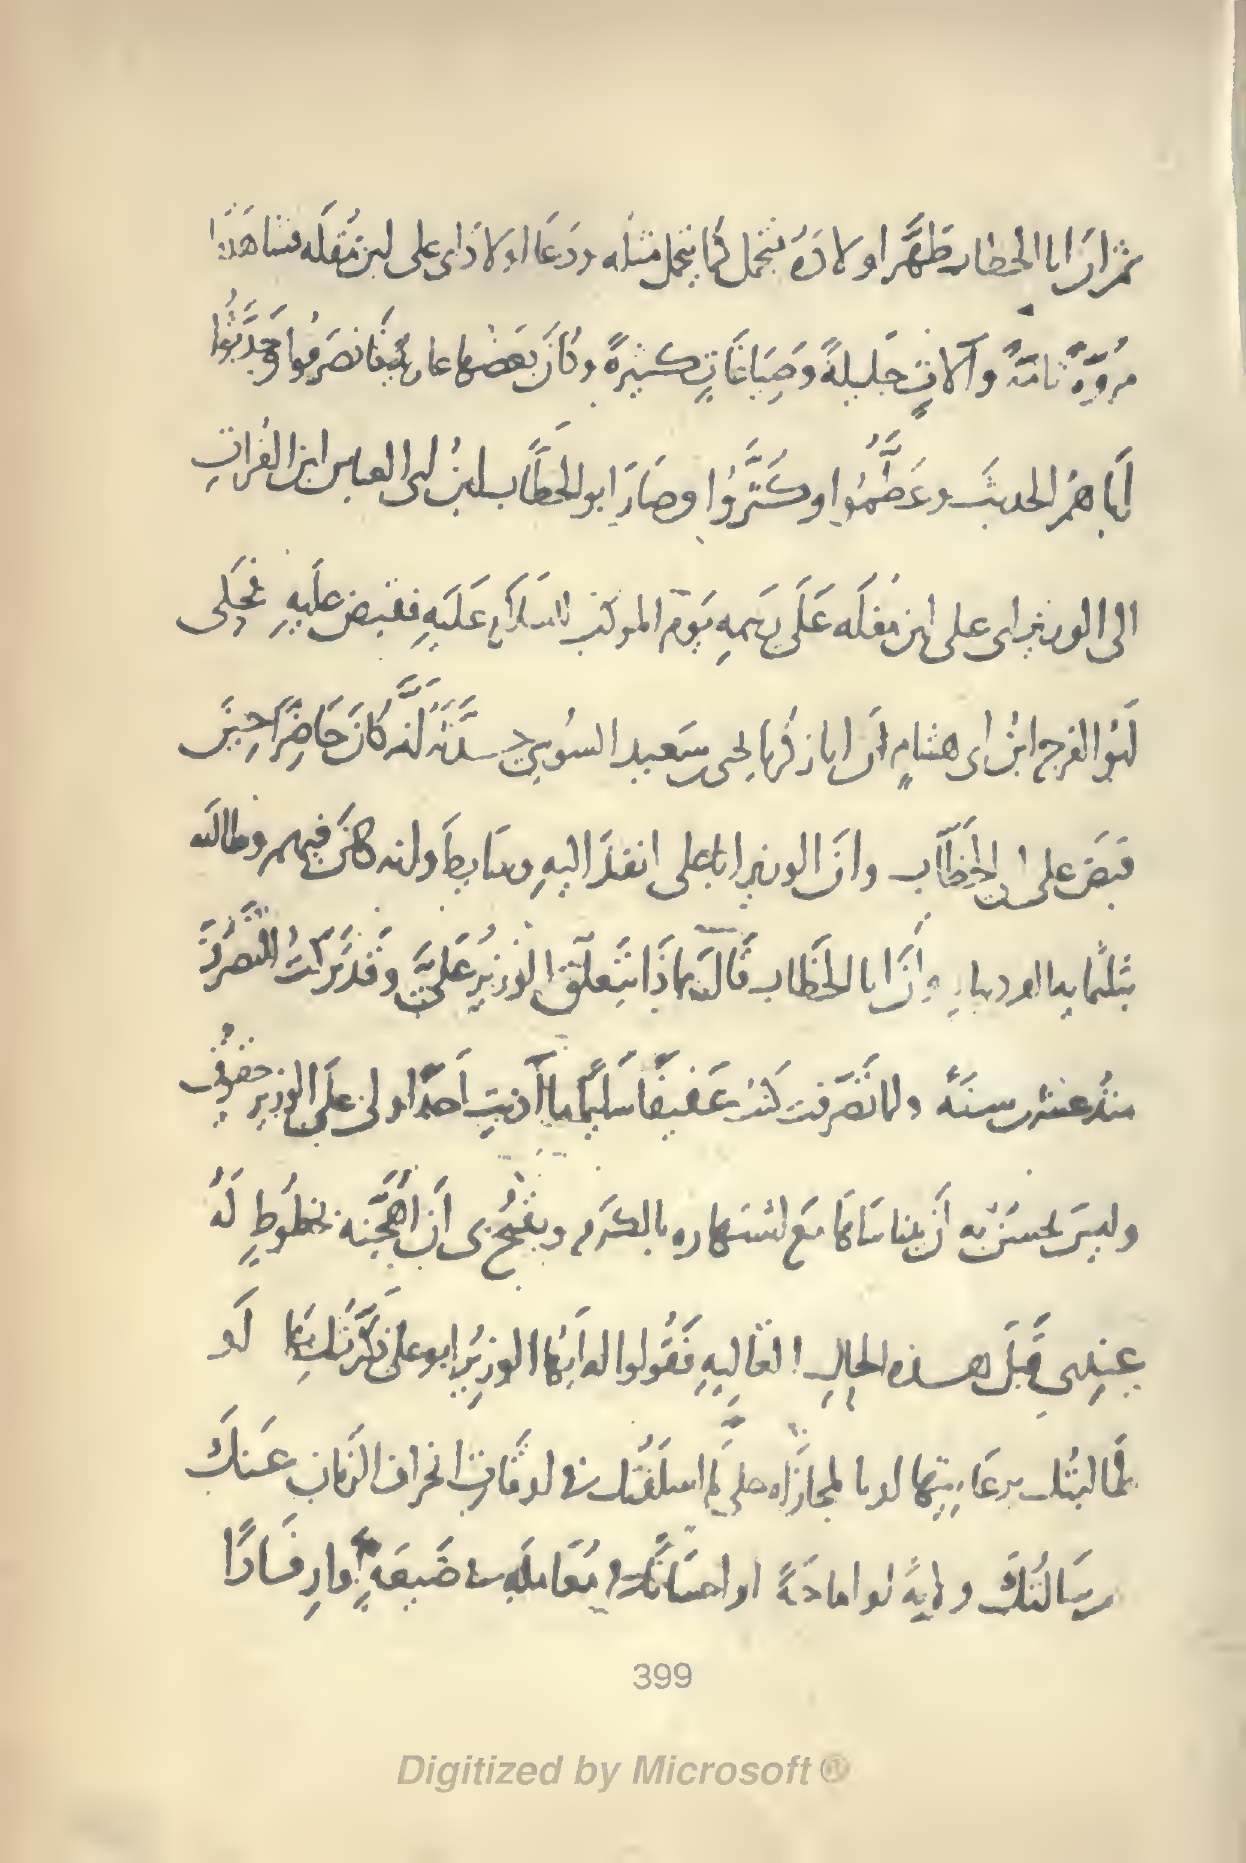 ثم ان ابا الخطاب طَهَّر اولادَهُ فتجمل كما يتجمل مثله ودَعَا اولادَ ابي على ابن مُقلَه فشاهَدُوا
مرُوَّةً تامّةً وآلاتٍ جَليلةً وصِيَاغَاتٍ كثيرةً وكانَ بَعضُها عارِيَةً فانصَرفُوا وحَدَّثُوا
أباهُم الحديثَ وعَظَّمُوا وكَثَّرُوا وصَارَ ابو الخطَّاب ابنُ ابى العباس ابن الفُراتِ
الى الوزير ابى على ابن مقلَه عَلَى رَسمِهِ يَومَ الموكب للسَلامِ عَلَيهِ فقبض عليهِ فحَكى
ابُو الفرج ابنُ ابى هشامٍ ان ابا زكريا يحيى سَعيد السُوسِي حَدَّثَهُ انَّه كانَ حَاضِرًا حِينَ
قبضَ على ابى الخطّاب وانَ الوزير ابا على انفذَ اليهِ وسَايطَ وانه كانَ فيهم وطالبَه
بثلثمايه الف دينارٍ وانَ ابا الخطّاب قالَ بماذَا يَتَعلّق الوَزيرُ عَليَّ وقَد تركتُ التَصرُّفَ
منذُ عشرين سنَةً ولما تصَرّفت كنتُ عَفيفًا سَليمًا ما آذيتُ اَحَدًا ولى عَلَى الوَزيرِ حقُوقٌ
وليسَ يحسنُ بهِ اَن يتناسَاهَا مَع اشتهاره بالكرَم ويقبُح بى اَن اُهَجِّنه بخطُوطٍ لَهُ
عِندِى قَبلَ هذه الحالِ القا اليهِ فَقُولوا له اَيُّها الوزيرُ ابو على ذكَّرتُك بها لَو
طالبتُك برعَايتِها او بالمجازاه على ما اسلَفتُك فى اوقَاتِ انحرافِ الزَمانِ عَنكَ
وسَالتُكَ ولايةً او امادَةً او احسَانًا فى مُعَاملَهٍ فى ضَيعَهٍ او ارِفَادًا
399
Digitized by Microsoft ®